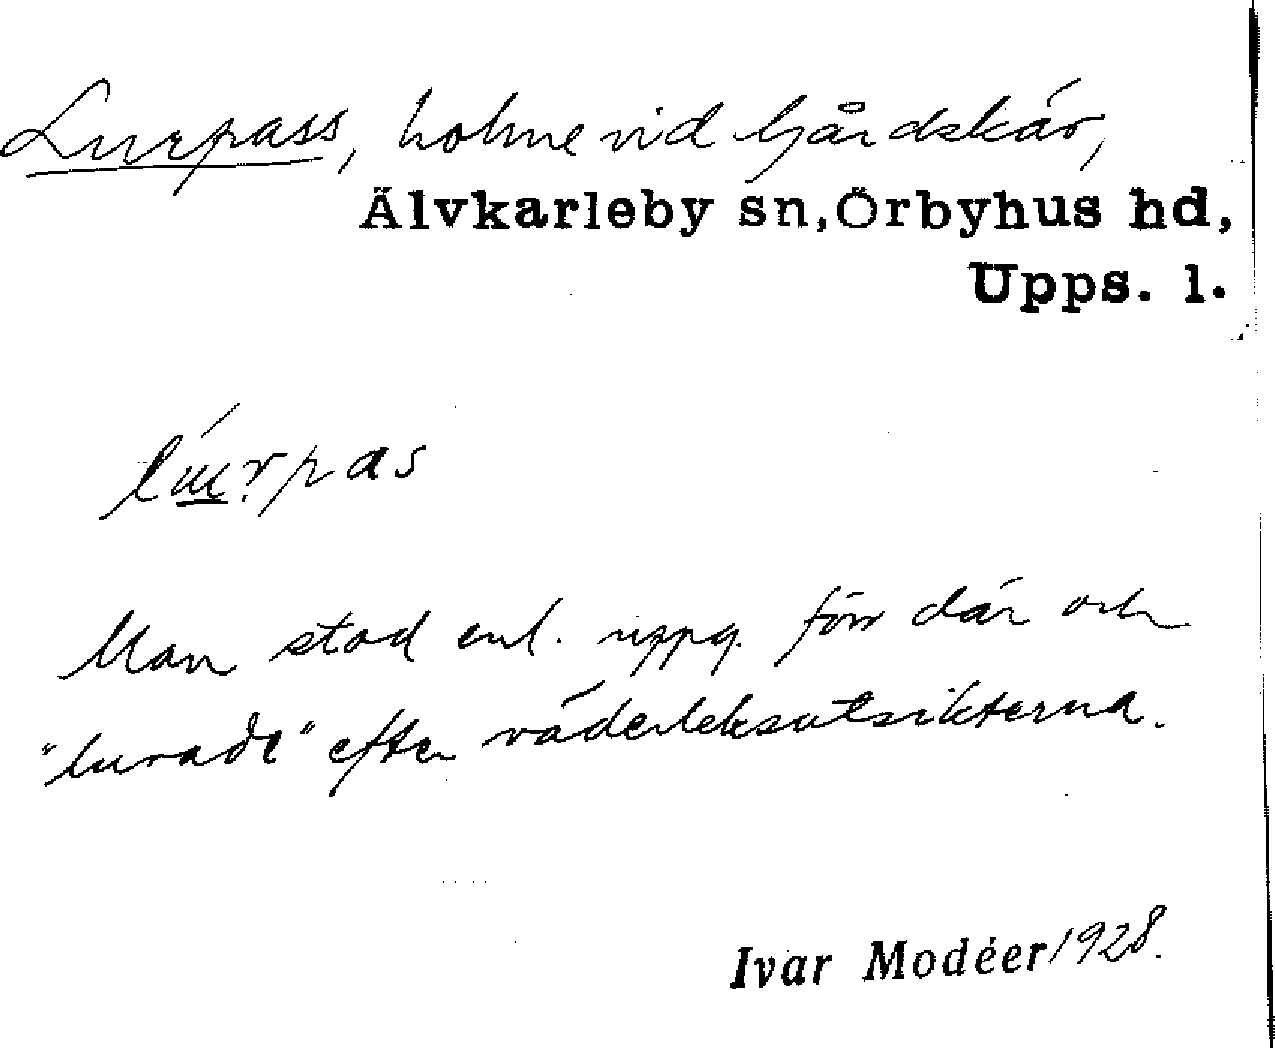 Lurpass, holme vid Gårdskär,
Älvkarleby sn, Örbyhus hd,
Upps. l.
Man stod enl. uppg. förr där och
"lurade" efter väderleksutsikterna.
Ivar Modéer 1928.